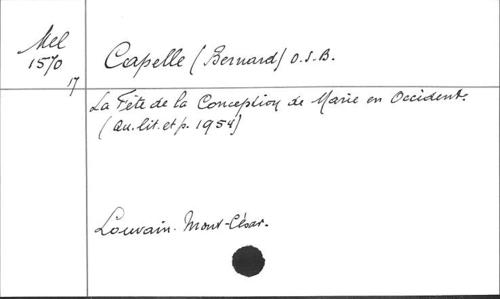 Mel
1570
17
Capelle (Bernard) O.S.B.
La Fête de la Conception de Marie en Occident.
(Qu. lit. et p. 1954)
Louvain. Mont-César.